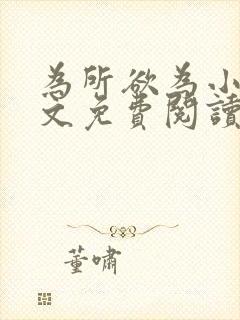 為所欲為小
文免費閱讀
董嘯